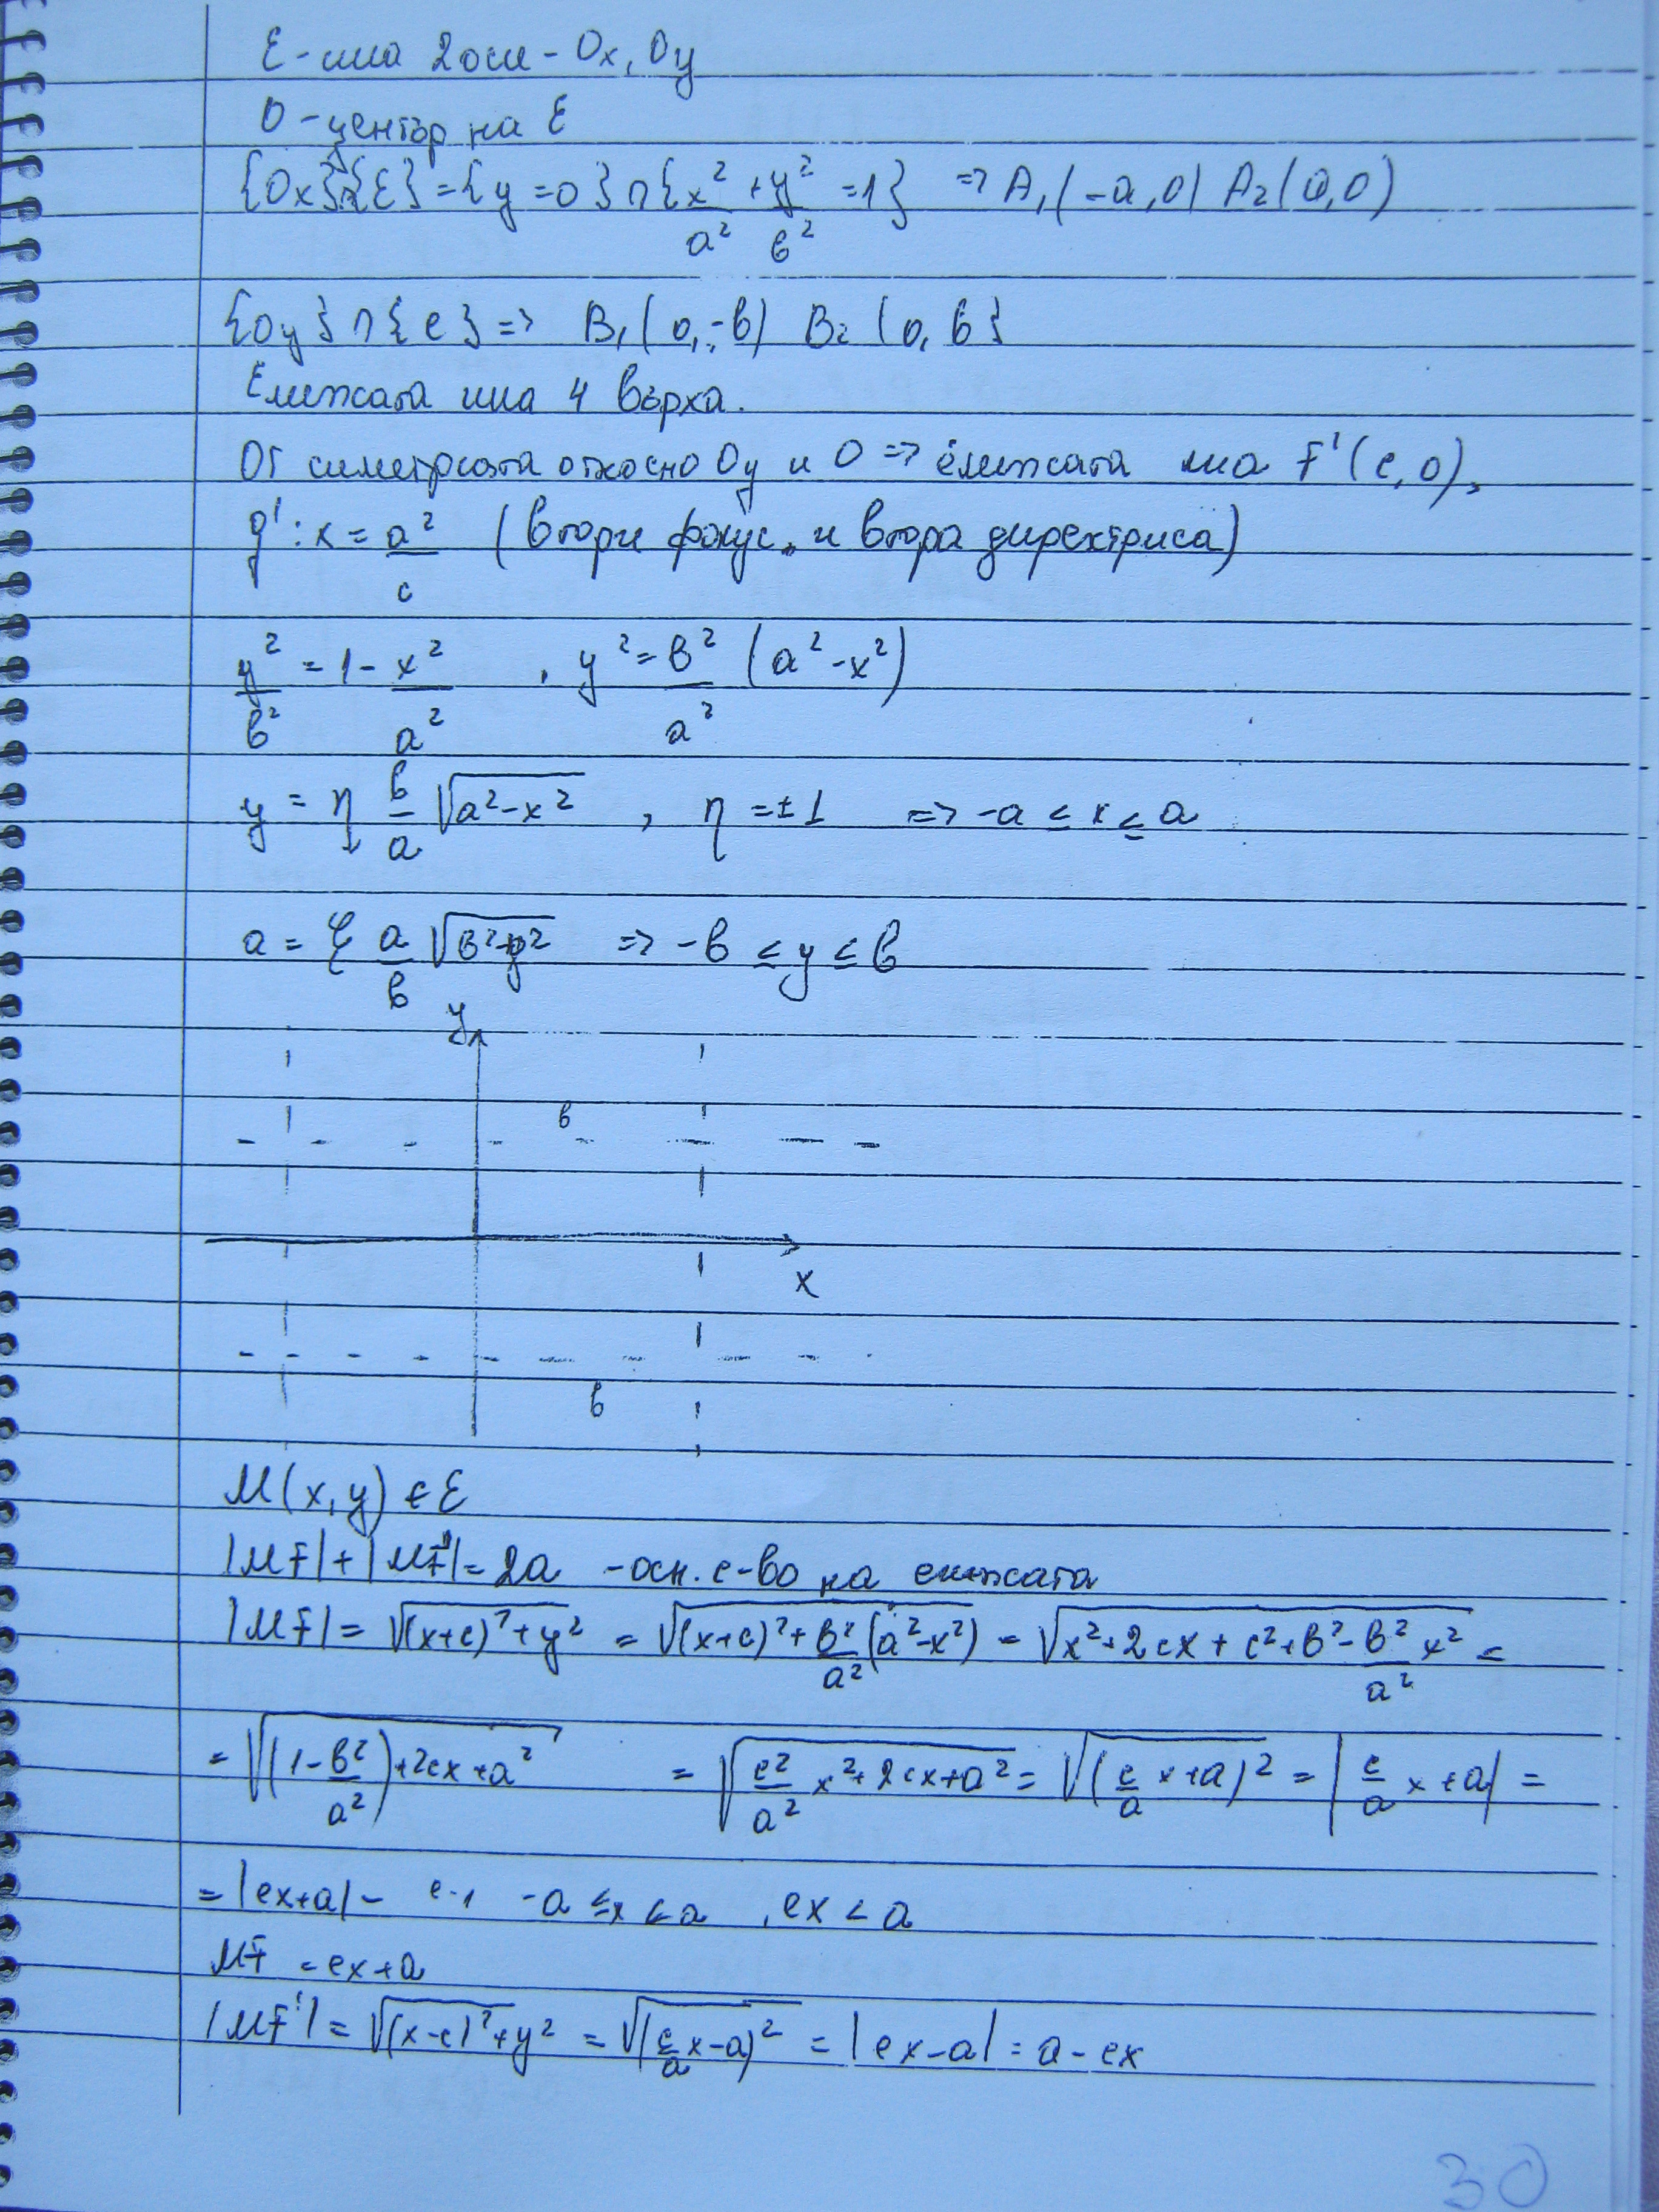 Ɛ - има 2 оси - Ox, Oy
O - център на Ɛ
{Ox}∩{Ɛ} = {y = 0} ∩ {x²/a² + y²/в² = 1} => A₁(-a, 0) A₂(a, 0)
{Oy} ∩ {е} => B₁(0, -в) B₂(0, в}
Елипсата има 4 върха.
От симетрията относно Oy и O => елипсата има F'(c, 0),
g': x = a²/c (втори фокус и втора директриса)
y²/в² = 1 - x²/a² , y² = в²/a² (a² - x²)
y = η в/a √(a² - x²) , η = ±1 => -a ≤ x ≤ a
a = ξ a/в √(в² - y²) => -в ≤ y ≤ в
y
в
x
в
M(x, y) ∈ Ɛ
|MF| + |MF'| = 2a - осн. с-во на елипсата
|MF| = √((x+c)² + y²) = √((x+c)² + в²/a² (a² - x²)) = √(x² + 2cx + c² + в² - в²/a² x²) =
= √((1 - в²/a²) + 2cx + a²) = √(c²/a² x² + 2cx + a²) = √((c/a x + a)²) = |c/a x + a| =
= |ex + a| - -a ≤ x ≤ a , ex < a
MF = ex + a
|MF'| = √((x-c)² + y²) = √((c/a x - a)²) = |ex - a| = a - ex
30